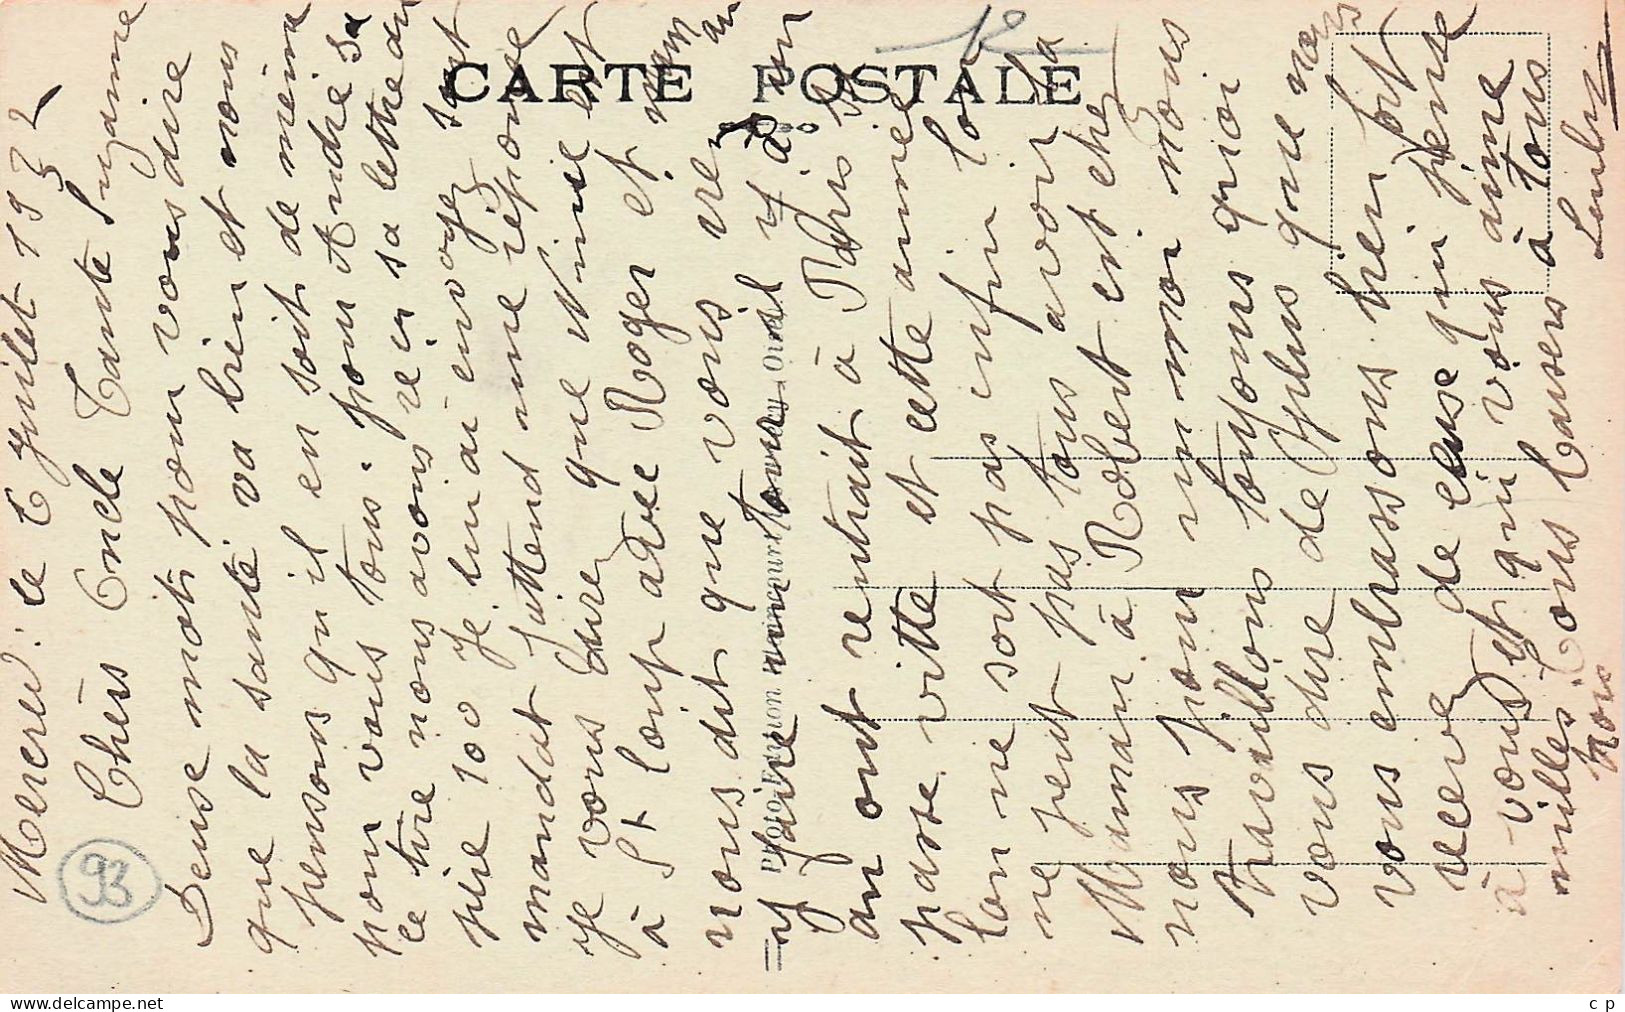 CARTE POSTALE
Mercredi le 6 Juillet 1932
Chèrs Oncle Tante Suzanne
Deuse mots pour vous dire
que la santé va bien et nous
pensons qu il en soit de même
pour vous tous. pour André sa
ce tire nous avons reçu sa lettre du
je lui ai envoyez sont
mandat J'attend une réponse
je vous direz que Ninie est
à St Loup avec Roger et
nous dit que vous
y faire il y à un
an ont rentrait à Paris
passe vitte et cette année
lon ne sort pas enfin lon
ne peut pas tous avoir la
Maman à Robert est chez
nous pour un moi nous
travaillons toujours quoi
vous dire de plus que nous
vous embrassons bien fort
recevez de ceuse qui pense
à vous et qui vous aime
milles Tous Basers à tous
Photo Edition
93
www.delcampe.net
c p